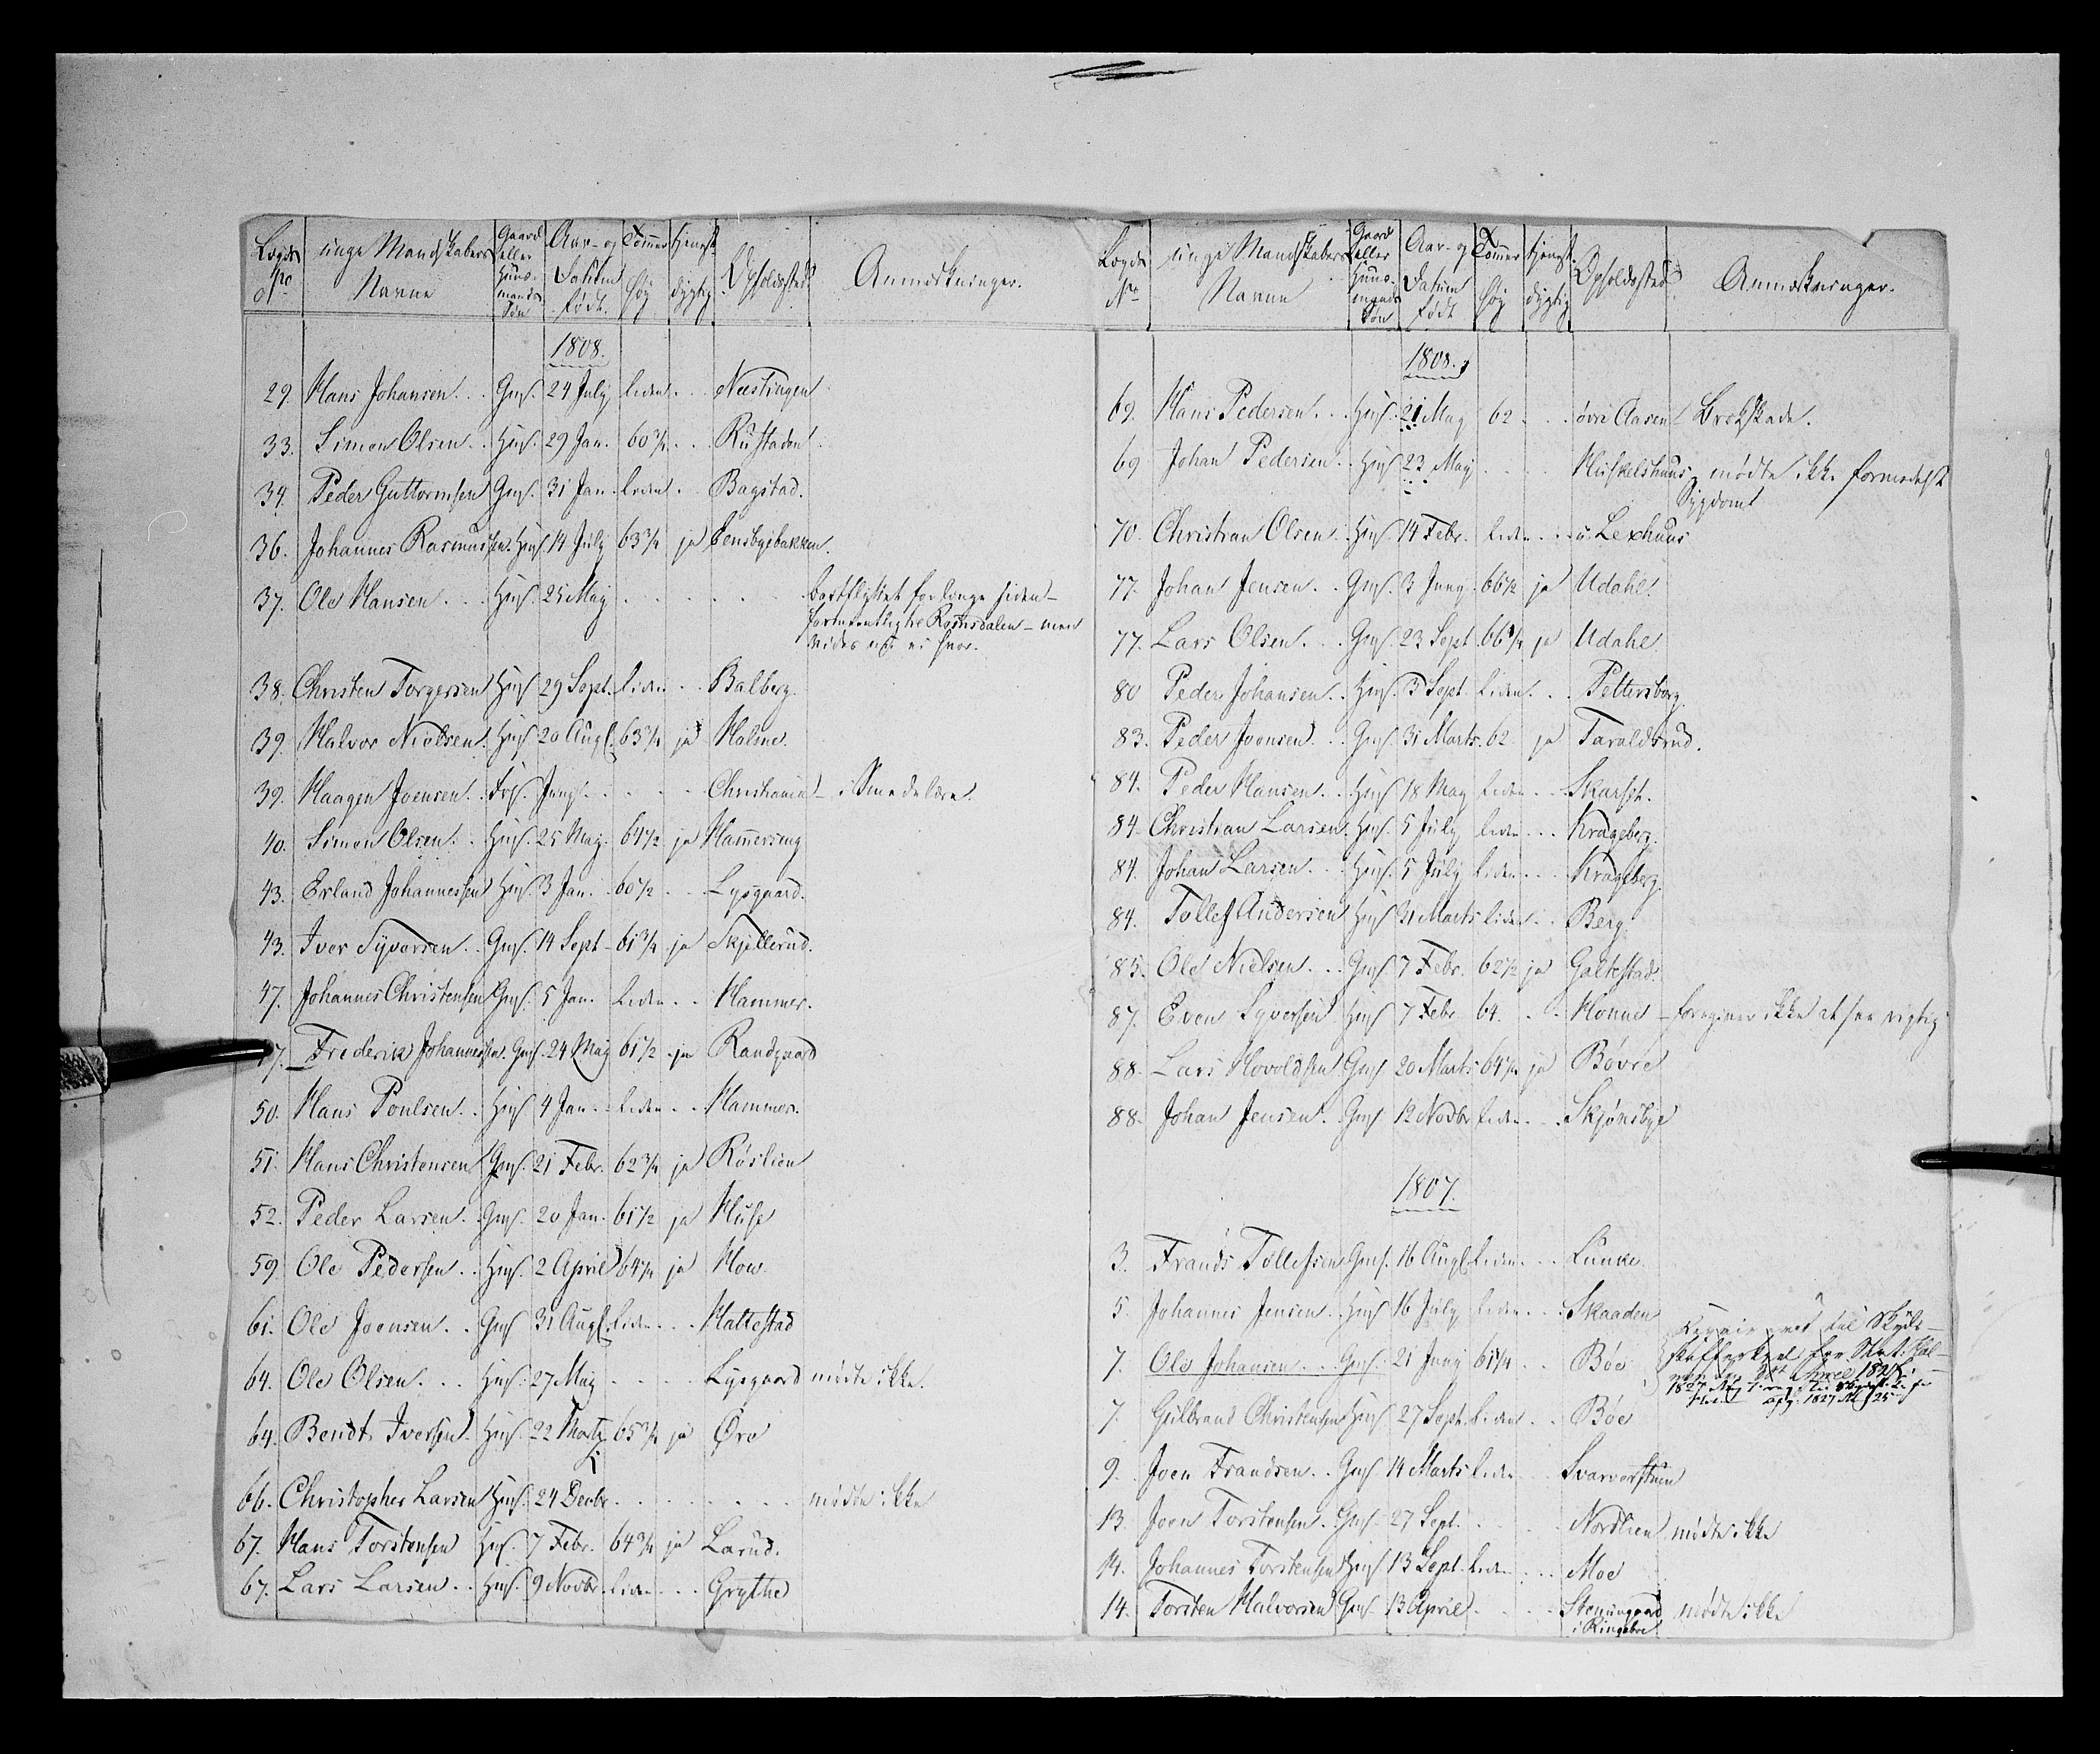 Lægds No | unge Mandskabers Navne | Gaard eller Huusmands Søn | Aar- og Datum født. | Tommer høy | tjenestdygtig | Opholdssted | Anmærkninger.
1808.
29. Hans Johansen . . Gms. 24 July liden . . Næstingen
33. Simon Olsen . . Hms. 29 Jan. 60 3/4 . . Rustaden
34. Peder Guttormsen Gms. 31 Jan. liden . Bagstad.
36. Johannes Rasmussen. Hms. 14 July 63 3/4 ja Jensbyebakken.
37. Ole Hansen . . . Hms. 25 May . . . . . bortflyttet for længe siden –
formeentlig til Romsdalen – men
vides ei hvor.
38. Christen Torgersen Hms 29 Sept. liden . . Balberg.
39. Halvor Nielsen. Hms 20 Augs. 63 3/4 ja Holme.
39. Haagen Joensen. . . . . . Christiania – i Smedelære.
40. Simon Olsen. . Hms. 25 May. 64 1/2 ja Hammerseng
43. Erland Johannessen Hms 3 Jan. 60 1/2 . . Lysgaard.
43. Iver Syversen . . Gms. 14 Sept. 61 3/4 ja Skjellerud.
47. Johannes Christensen Gms. 5 Jan. liden . . Hammer.
47. Frederik Johannessen. Gms. 24 May 61 1/2 ja Randgaard
50. Hans Poulsen . . Hms 4 Jan. liden . . Hammer.
51. Hans Christensen Gms. 21 Febr. 62 3/4 ja Røslien
52. Peder Larsen. . Gms. 20 Jan. 61 1/2 ja Huse
59. Ole Pedersen . . Hms. 2 April 64 1/4 ja How
61. Ole Joensen . . Gms 31 Augs. liden . . . Hattestad
64. Ole Olsen . . . Hms. 27 May . . . . Lysgaard mødte ikke.
64. Bendt Iversen. Hms. 22 Marts 65 3/4 ja Øre
66. Christopher Larsen Hms. 24 Decbr . . . . . . . mødte ikke
67. Hans Torstensen Hms. 7 Febr. 64 3/4 ja Larud.
67. Lars Larsen . . Hms. 9 Novbr. liden . . . Grythe
Lægds No | unge Mandskabers Navne | Gaard eller Huusmands Søn | Aar- og Datum født | Tommer høy | tjenestdygtig | Opholdssted | Anmærkninger.
1808.
69. Hans Pedersen . . . Hms. 21 May 62 . . . øvre Aasen Brokskade.
69 Johan Pedersen . . Hms 23 May . . . . Huskelshuus – mødte ikke formedelst
Sygdom
70. Christian Olsen . Hms. 14 Febr. liden . . u. Lexhuus
77. Johan Jensen . . Gms. 3 Juny. 66 1/2 ja Udahl.
77. Lars Olsen . . . Gms. 23 Sept. 66 3/4 ja Udahl
80 Peder Johansen . . Hms. 3 Sept. liden . . Pettersborg.
83. Peder Joensen . . . Gms. 31 Marts. 62 ja Taraldsrud.
84. Peder Hansen . . Hms 18 May liden . . Skarset.
84. Christian Larsen. Hms. 5 July liden . . . Krageberg.
84. Johan Larsen . . . Hms. 5 July liden . . . Krageberg.
84. Tollef Andersen Hms 31 Marts liden . . Berg.
85. Ole Nielsen . . . Gms. 7 Febr. 62 1/2 ja Galtestad.
87. Even Syversen Hms 7 Febr 64. . . Honne – foregiver ikke at see rigtig
88. Lars Hovoldsen Gms 20 Marts 64 1/4 ja Bøvre
88. Johan Jensen . . Gms 12 Novbr liden . . . Skjønsbye
1807.
3. Frands Tollefsen Gms. 16 Augs. liden . . . Lunke.
5. Johannes Jensen . . Hms 16 July liden . . . Skaaden
7. Ole Johansen . . . Gms. 21 Juny 61 1/4 . . Bøe
7. Gulbrand Christensen Hms 27 Sept. liden . . Bøe
9. Joen Frandsen . . Gms 14 Marts liden . . Svarverstuen
13. Joen Torstensen . Gms 27 Sept. . . . . Nordlien mødte ikke
14. Johannes Torstensen Hms 13 Sept. liden . . . Moe
14. Torsten Halvorsen Gms 13 April . . . . Steningaard mødte ikke
i Ringeboe